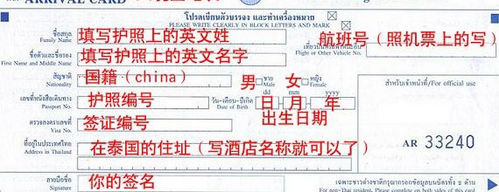 ARRIVAL CARD
โปรดเขียนตัวบรรจง และทำเครื่องหมาย
PLEASE WRITE CLEARLY IN BLOCK LETTERS AND MARK
ชื่อสกุล
Family Name
填写护照上的英文姓
航班号（照机票上的写）
ชื่อตัวและชื่อรอง
First Name and Middle Name
填写护照上的英文名字
Flight or Other Vehicle No.
สัญชาติ
Nationality
国籍（china）
男
ชาย
Male
女
หญิง
Female
สำหรับเจ้าหน้าที่/For official use
เลขที่หนังสือเดินทาง
Passport No.
护照编号
วัน-เดือน-ปีเกิด
Date of Birth
dd
mm
yyyy
日
月
年
ตรวจลงตราเลขที่
Visa No.
签证编号
出生日期
ที่อยู่ในประเทศไทย
Address in Thailand
在泰国的住址（写酒店名称就可以了）
AR 33240
ลายมือชื่อ
Signature
你的签名
เฉพาะชาวต่างชาติกรุณากรอกข้อมูลบนบัตรทั้ง 2 ด้าน